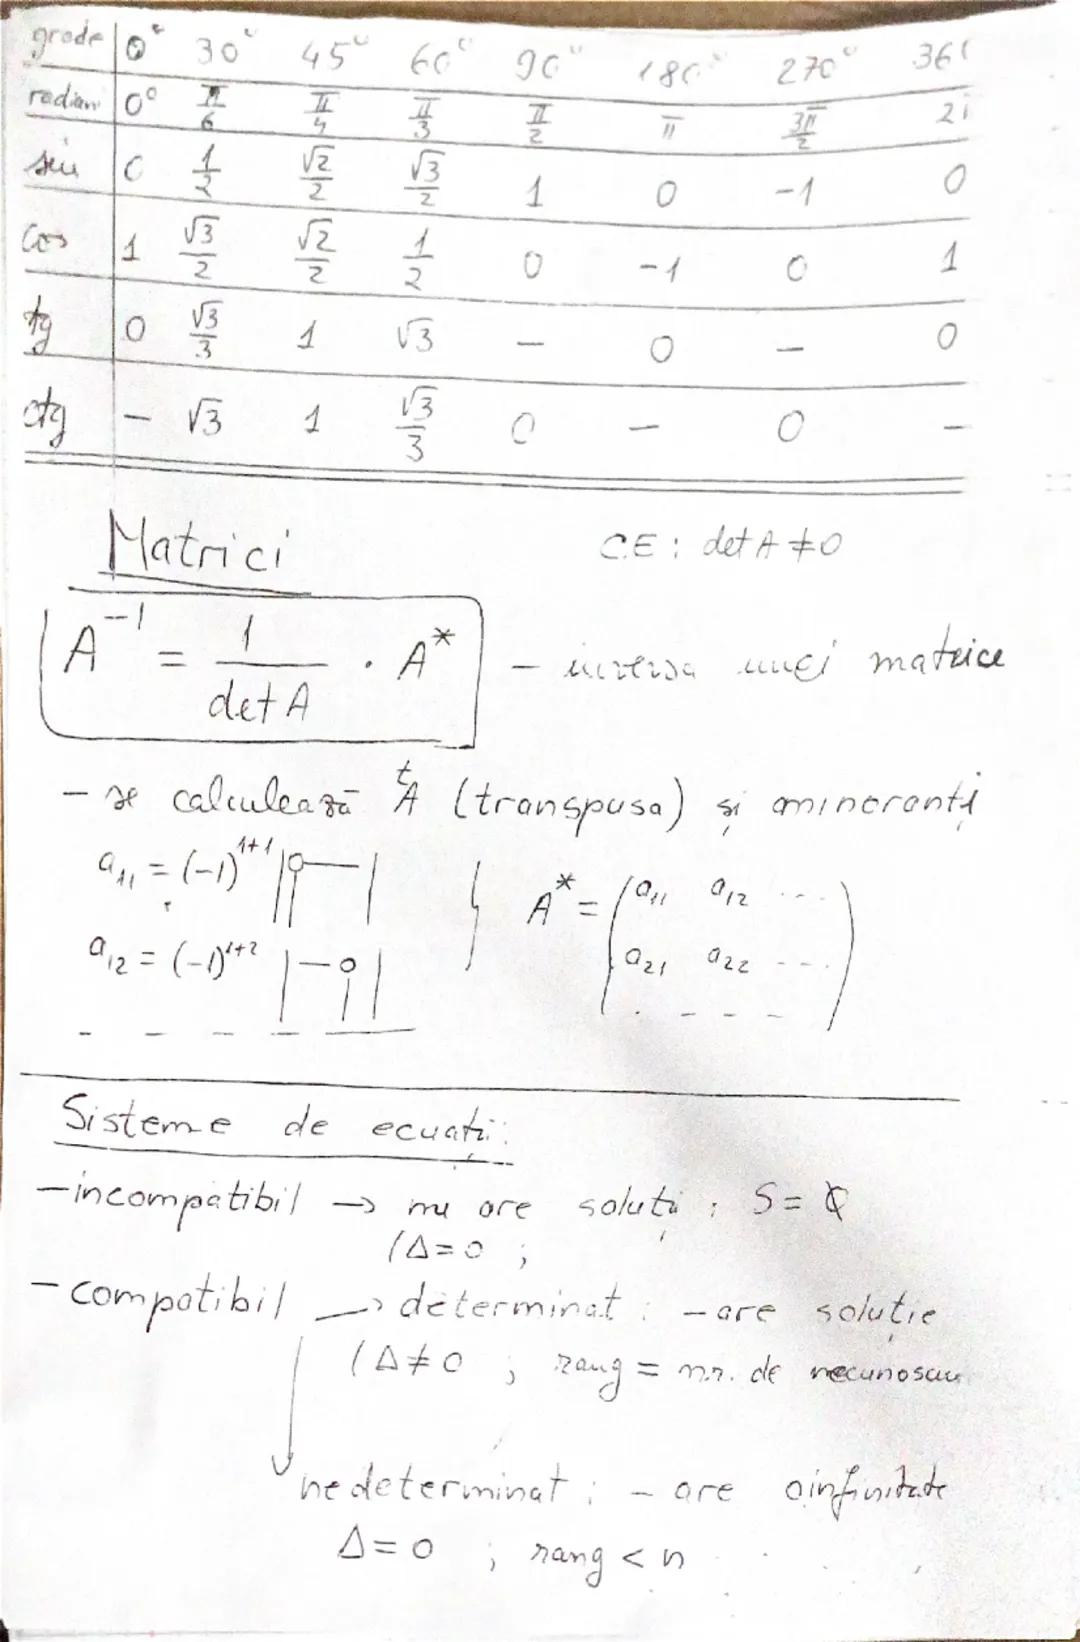 grade 0° 30° 45° 60° 90° 180° 270° 36
radiani 0° π/6 π/4 π/3 π/2 π 3π/2 2
sin 0 1/2 √2/2 √3/2 1 0 -1 0
cos 1 √3/2 √2/2 1/2 0 -1 0 1
tg 0 √3/3 1 √3 — 0 — 0
ctg — √3 1 √3/3 0 — 0 —
Matrici C.E: det A ≠ 0
A⁻¹ = 1/det A · A* - inversa unei matrice
- se calculează ᵗA (transpusa) și aminoranți
a₁₁ = (-1)¹⁺¹
a₁₂ = (-1)¹⁺²
A* = (a₁₁ a₁₂ ...
a₂₁ a₂₂ ...
. - - -)
Sisteme de ecuații:
- incompatibil → nu are soluții ; S = ∅
(Δ=0 ;
- compatibil → determinat : - are soluție
(Δ≠0 ; rang = nr. de necunoscu
nedeterminat ; - are oinfinitate
Δ=0 ; rang < n